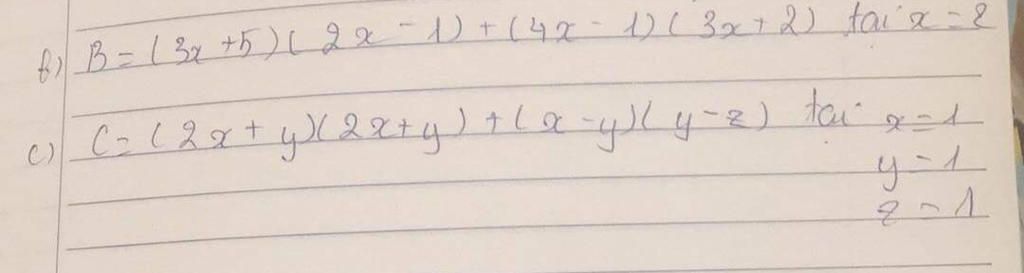 b) B = (3x + 5)(2x - 1) + (4x - 1)(3x + 2) tại x = 2
c) C = (2x + y)(2x + y) + (x - y)(y - z) tại x = 1
y = 1
z = 1